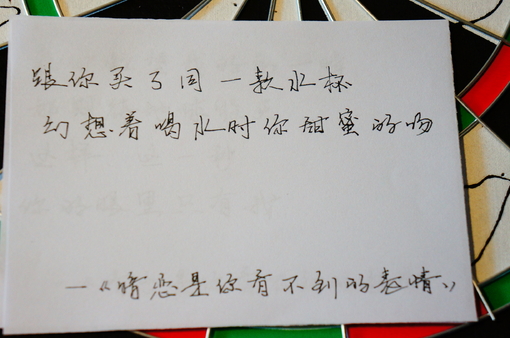 跟你买了同一款水杯
幻想着喝水时你甜蜜的吻
—《暗恋是你看不到的表情》